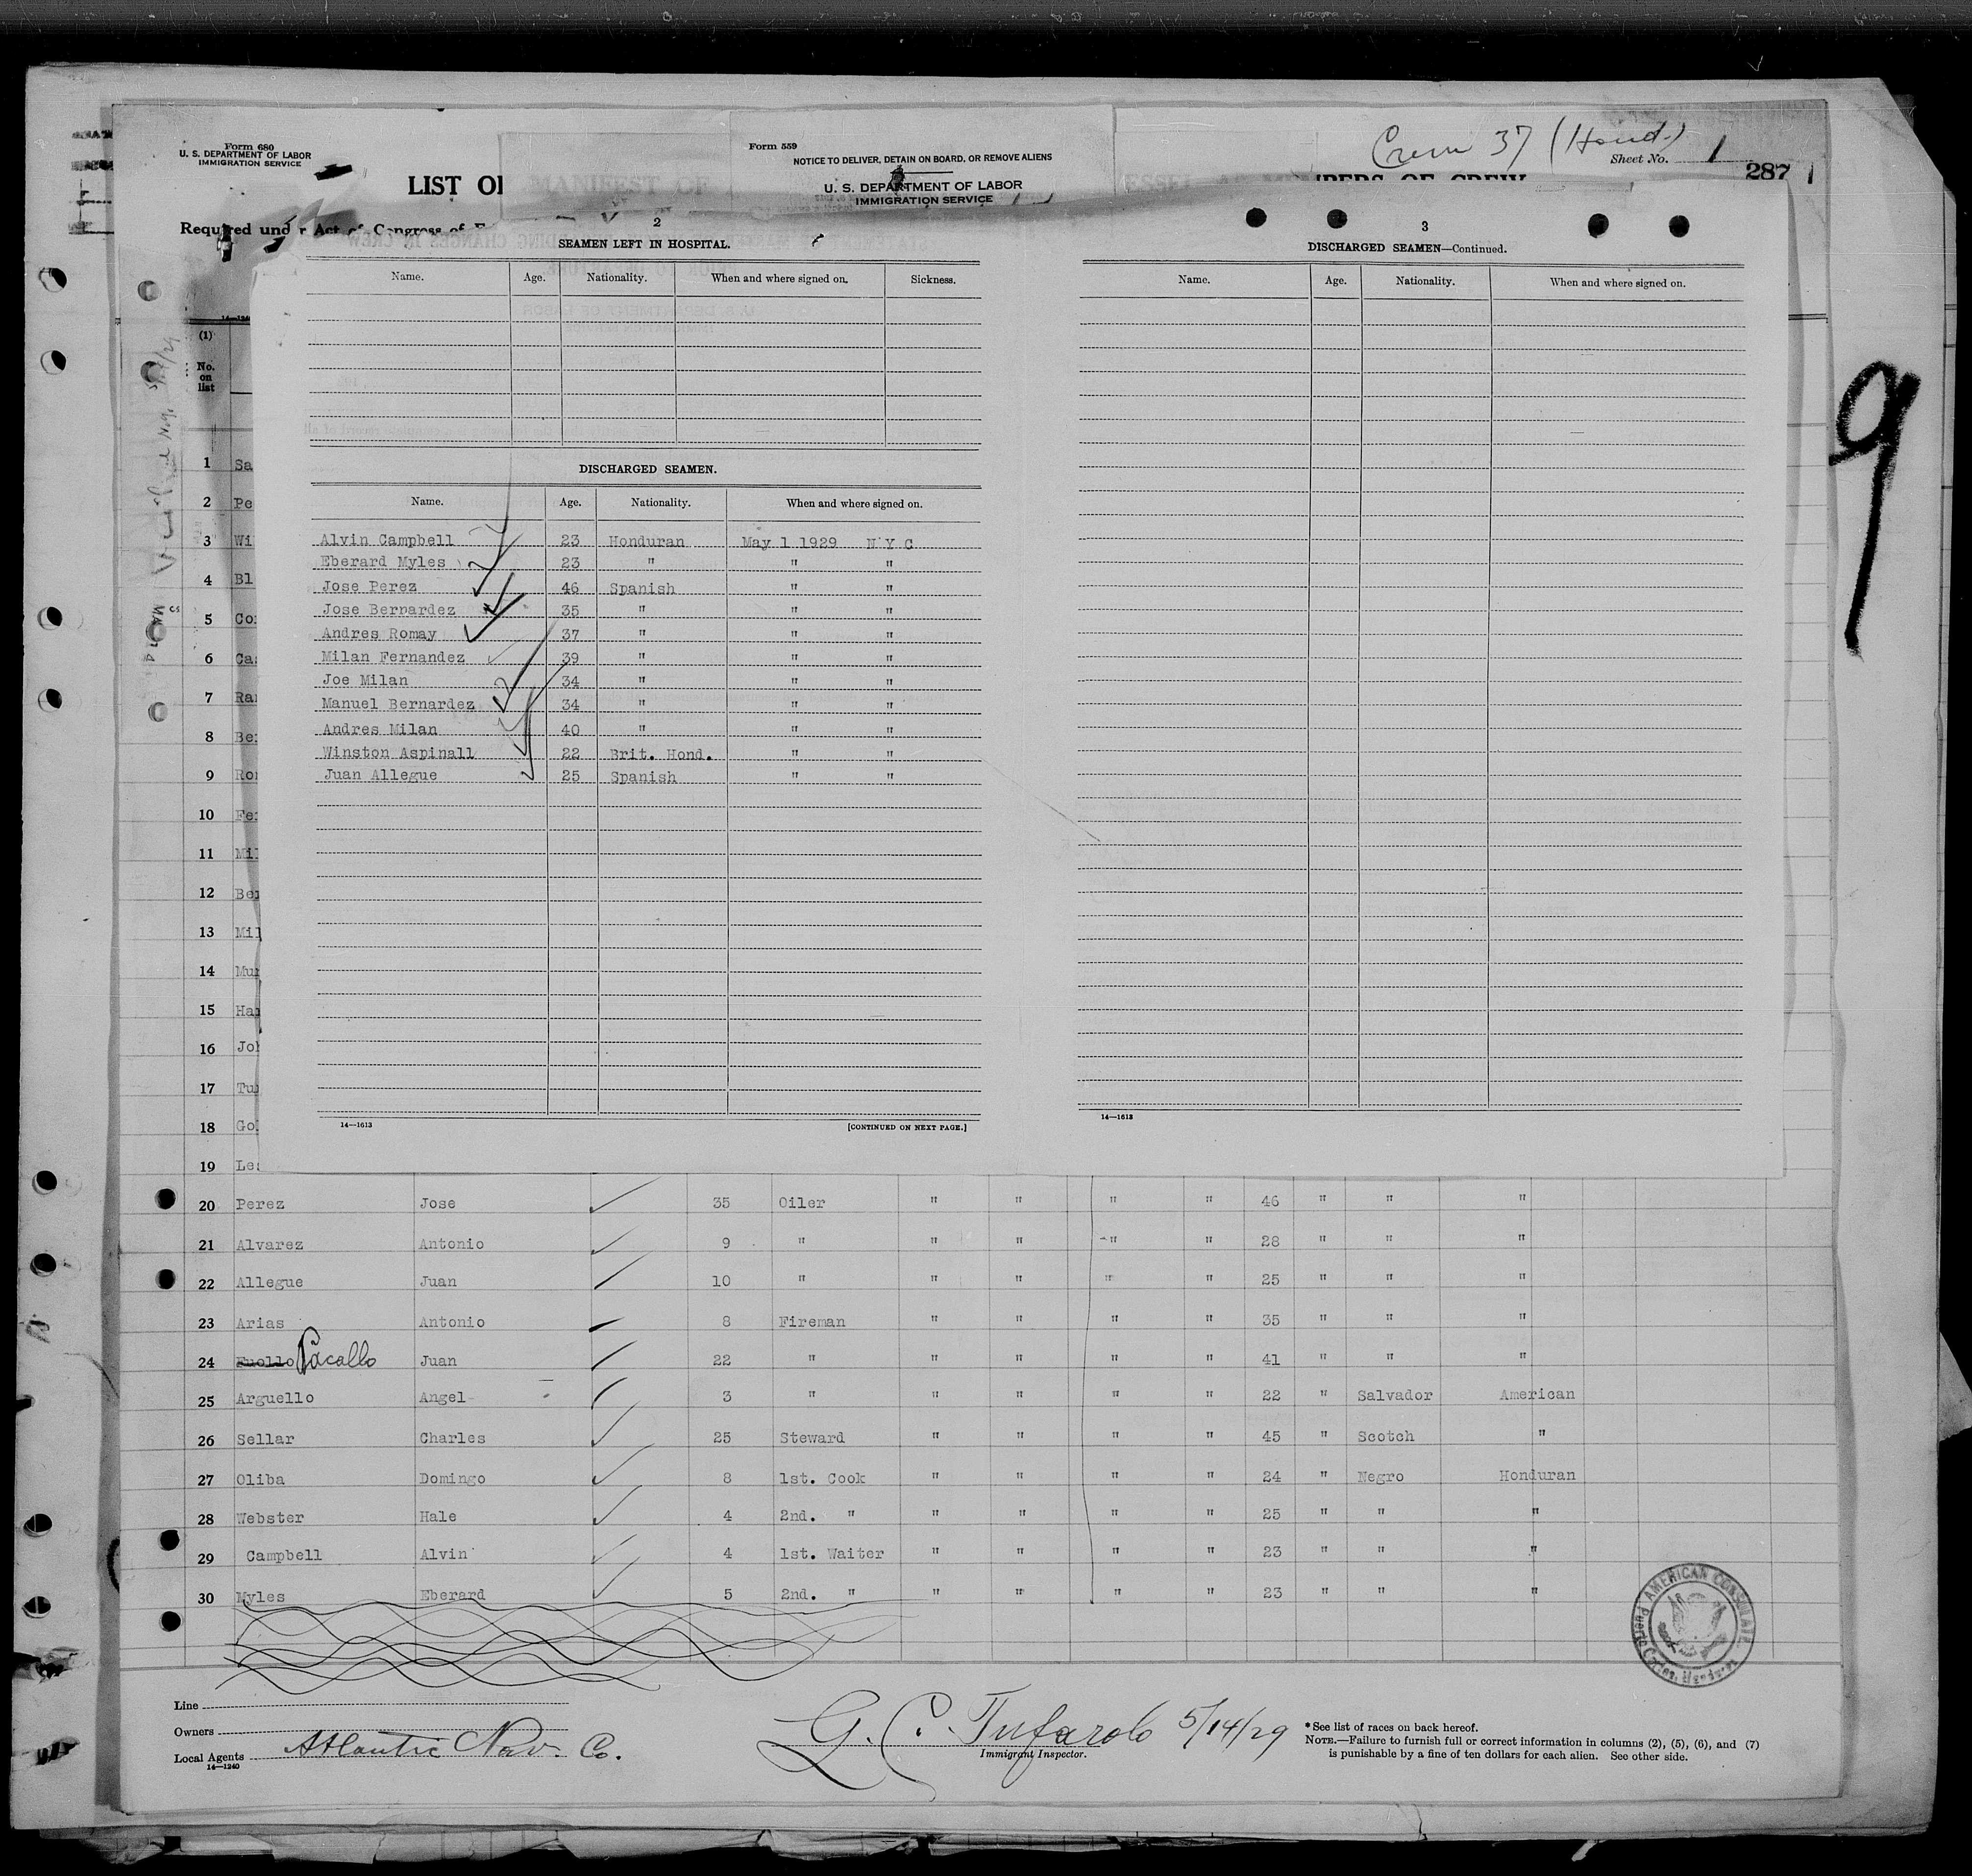 Crew 37 (Hond.)
Form 680
U. S. DEPARTMENT OF LABOR
IMMIGRATION SERVICE
Form 559
NOTICE TO DELIVER, DETAIN ON BOARD, OR REMOVE ALIENS
U. S. DEPARTMENT OF LABOR
IMMIGRATION SERVICE
Sheet No. 1
287
LIST OF
MANIFEST OF
Required under Act of Congress of
2
SEAMEN LEFT IN HOSPITAL.
Name. Age. Nationality. When and where signed on. Sickness.
DISCHARGED SEAMEN.
Name. Age. Nationality. When and where signed on.
Alvin Campbell 23 Honduran May 1 1929 N Y C
Eberard Myles 23 " " "
Jose Perez 46 Spanish " "
Jose Bernardez 35 " " "
Andres Romay 37 " " "
Milan Fernandez 39 " " "
Joe Milan 34 " " "
Manuel Bernardez 34 " " "
Andres Milan 40 " " "
Winston Aspinall 22 Brit. Hond. " "
Juan Allegue 25 Spanish " "
14—1613 [CONTINUED ON NEXT PAGE.]
3
DISCHARGED SEAMEN—Continued.
Name. Age. Nationality. When and where signed on.
14—1613
9
(1)
No. on list
1 Sa
2 Pe
3 Wi
4 Bl
5 Co
6 Ca
7 Ra
8 Be
9 Ro
10 Fe
11 Mil
12 Ber
13 Mil
14 Mu
15 Ha
16 Joh
17 Tu
18 Go
19 Le
20 Perez Jose 35 Oiler " " " " 46 " " "
21 Alvarez Antonio 9 " " " " " 28 " " "
22 Allegue Juan 10 " " " " " 25 " " "
23 Arias Antonio 8 Fireman " " " " 35 " " "
24 Pacallo Juan 22 " " " " " 41 " " "
25 Arguello Angel 3 " " " " " 22 " Salvador American
26 Sellar Charles 25 Steward " " " " 45 " Scotch "
27 Oliba Domingo 8 1st. Cook " " " " 24 " Negro Honduran
28 Webster Hale 4 2nd. " " " " " 25 " " "
29 Campbell Alvin 4 1st. Waiter " " " " 23 " " "
30 Myles Eberard 5 2nd. " " " " " 23 " " "
AMERICAN CONSULATE
Puerto Cortes, Honduras
Line
Owners
Local Agents Atlantic Nav. Co.
14—1240
G. C. Tufarolo 5/14/29
Immigrant Inspector.
*See list of races on back hereof.
NOTE.—Failure to furnish full or correct information in columns (2), (5), (6), and (7)
is punishable by a fine of ten dollars for each alien. See other side.